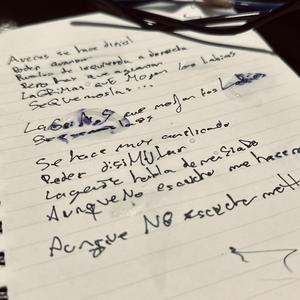 A veces se hace difícil
Poder avanzar
Rumbo de izquierda a derecha
Pero hay que aguantar
LaGRiMas que Mojan los labios
SeQuemoslas...
LaGRiMaS que mojan los Labios
Se hace muy complicado
Poder disiMULar
La gente habla demasiado
Aunque No escucho me hacen
Aunque No escucho